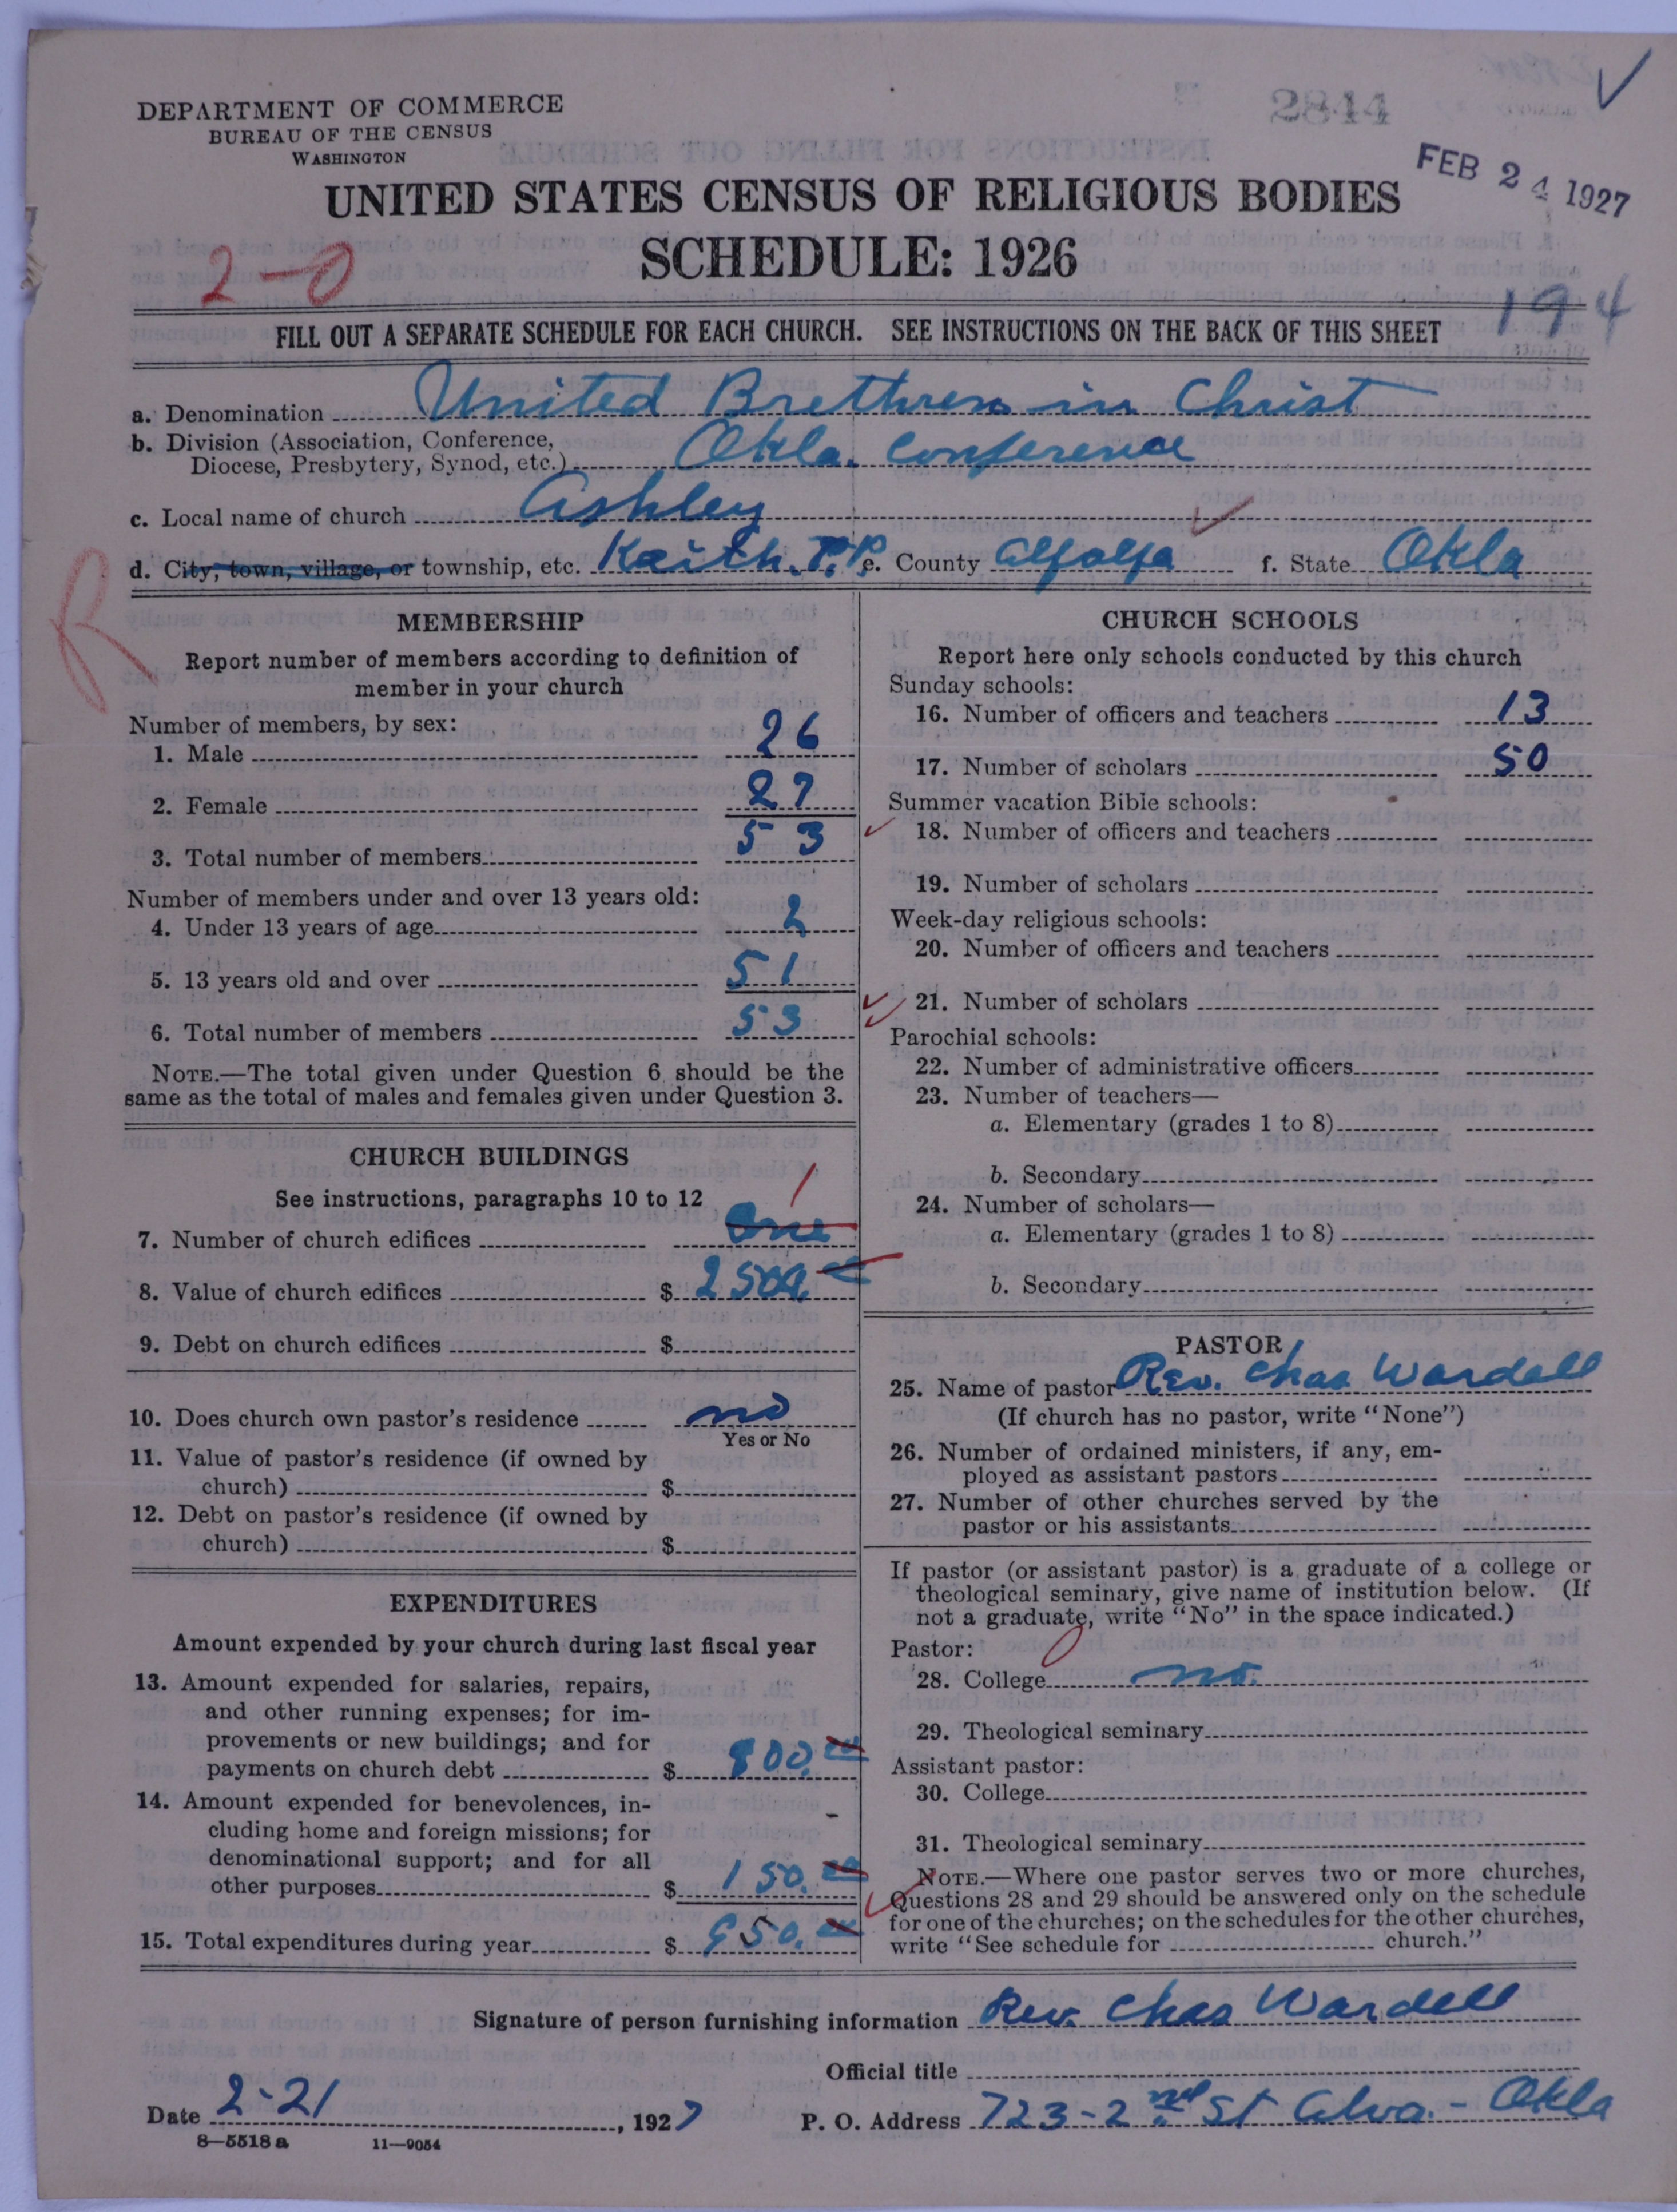 2844
DEPARTMENT OF COMMERCE
BUREAU OF THE CENSUS
WASHINGTON
FEB 24 1927
UNITED STATES CENSUS OF RELIGIOUS BODIES
SCHEDULE: 1926
2-0
194
FILL OUT A SEPARATE SCHEDULE FOR EACH CHURCH. SEE INSTRUCTIONS ON THE BACK OF THIS SHEET
a. Denomination United Brethren in Christ
b. Division (Association, Conference,
Diocese, Presbytery, Synod, etc.) Okla. Conference
c. Local name of church Ashley
d. City, town, village, or township, etc. Keith. T.P. e. County Alfalfa f. State Okla
R
MEMBERSHIP
Report number of members according to definition of
member in your church
Number of members, by sex:
1. Male 26
2. Female 27
3. Total number of members 53
Number of members under and over 13 years old:
4. Under 13 years of age 2
5. 13 years old and over 51
6. Total number of members 53
NOTE.—The total given under Question 6 should be the
same as the total of males and females given under Question 3.
CHURCH BUILDINGS
See instructions, paragraphs 10 to 12
7. Number of church edifices One 1
8. Value of church edifices $ 2500.00
9. Debt on church edifices $
10. Does church own pastor's residence no
Yes or No
11. Value of pastor's residence (if owned by
church) $
12. Debt on pastor's residence (if owned by
church) $
EXPENDITURES
Amount expended by your church during last fiscal year
13. Amount expended for salaries, repairs,
and other running expenses; for im-
provements or new buildings; and for
payments on church debt $ 800.00
14. Amount expended for benevolences, in-
cluding home and foreign missions; for
denominational support; and for all
other purposes $ 150.00
15. Total expenditures during year $ 950.00
CHURCH SCHOOLS
Report here only schools conducted by this church
Sunday schools:
16. Number of officers and teachers 13
17. Number of scholars 50
Summer vacation Bible schools:
18. Number of officers and teachers
19. Number of scholars
Week-day religious schools:
20. Number of officers and teachers
21. Number of scholars
Parochial schools:
22. Number of administrative officers
23. Number of teachers—
a. Elementary (grades 1 to 8)
b. Secondary
24. Number of scholars—
a. Elementary (grades 1 to 8)
b. Secondary
PASTOR
25. Name of pastor Rev. Chas Wardell
(If church has no pastor, write "None")
26. Number of ordained ministers, if any, em-
ployed as assistant pastors
27. Number of other churches served by the
pastor or his assistants
If pastor (or assistant pastor) is a graduate of a college or
theological seminary, give name of institution below. (If
not a graduate, write "No" in the space indicated.)
Pastor:
28. College no.
29. Theological seminary
Assistant pastor:
30. College
31. Theological seminary
NOTE.—Where one pastor serves two or more churches,
Questions 28 and 29 should be answered only on the schedule
for one of the churches; on the schedules for the other churches,
write "See schedule for church."
Signature of person furnishing information Rev. Chas Wardell
Official title
Date 2-21, 1927 P. O. Address 723-2nd St Alva. - Okla
8—5518a 11—9054